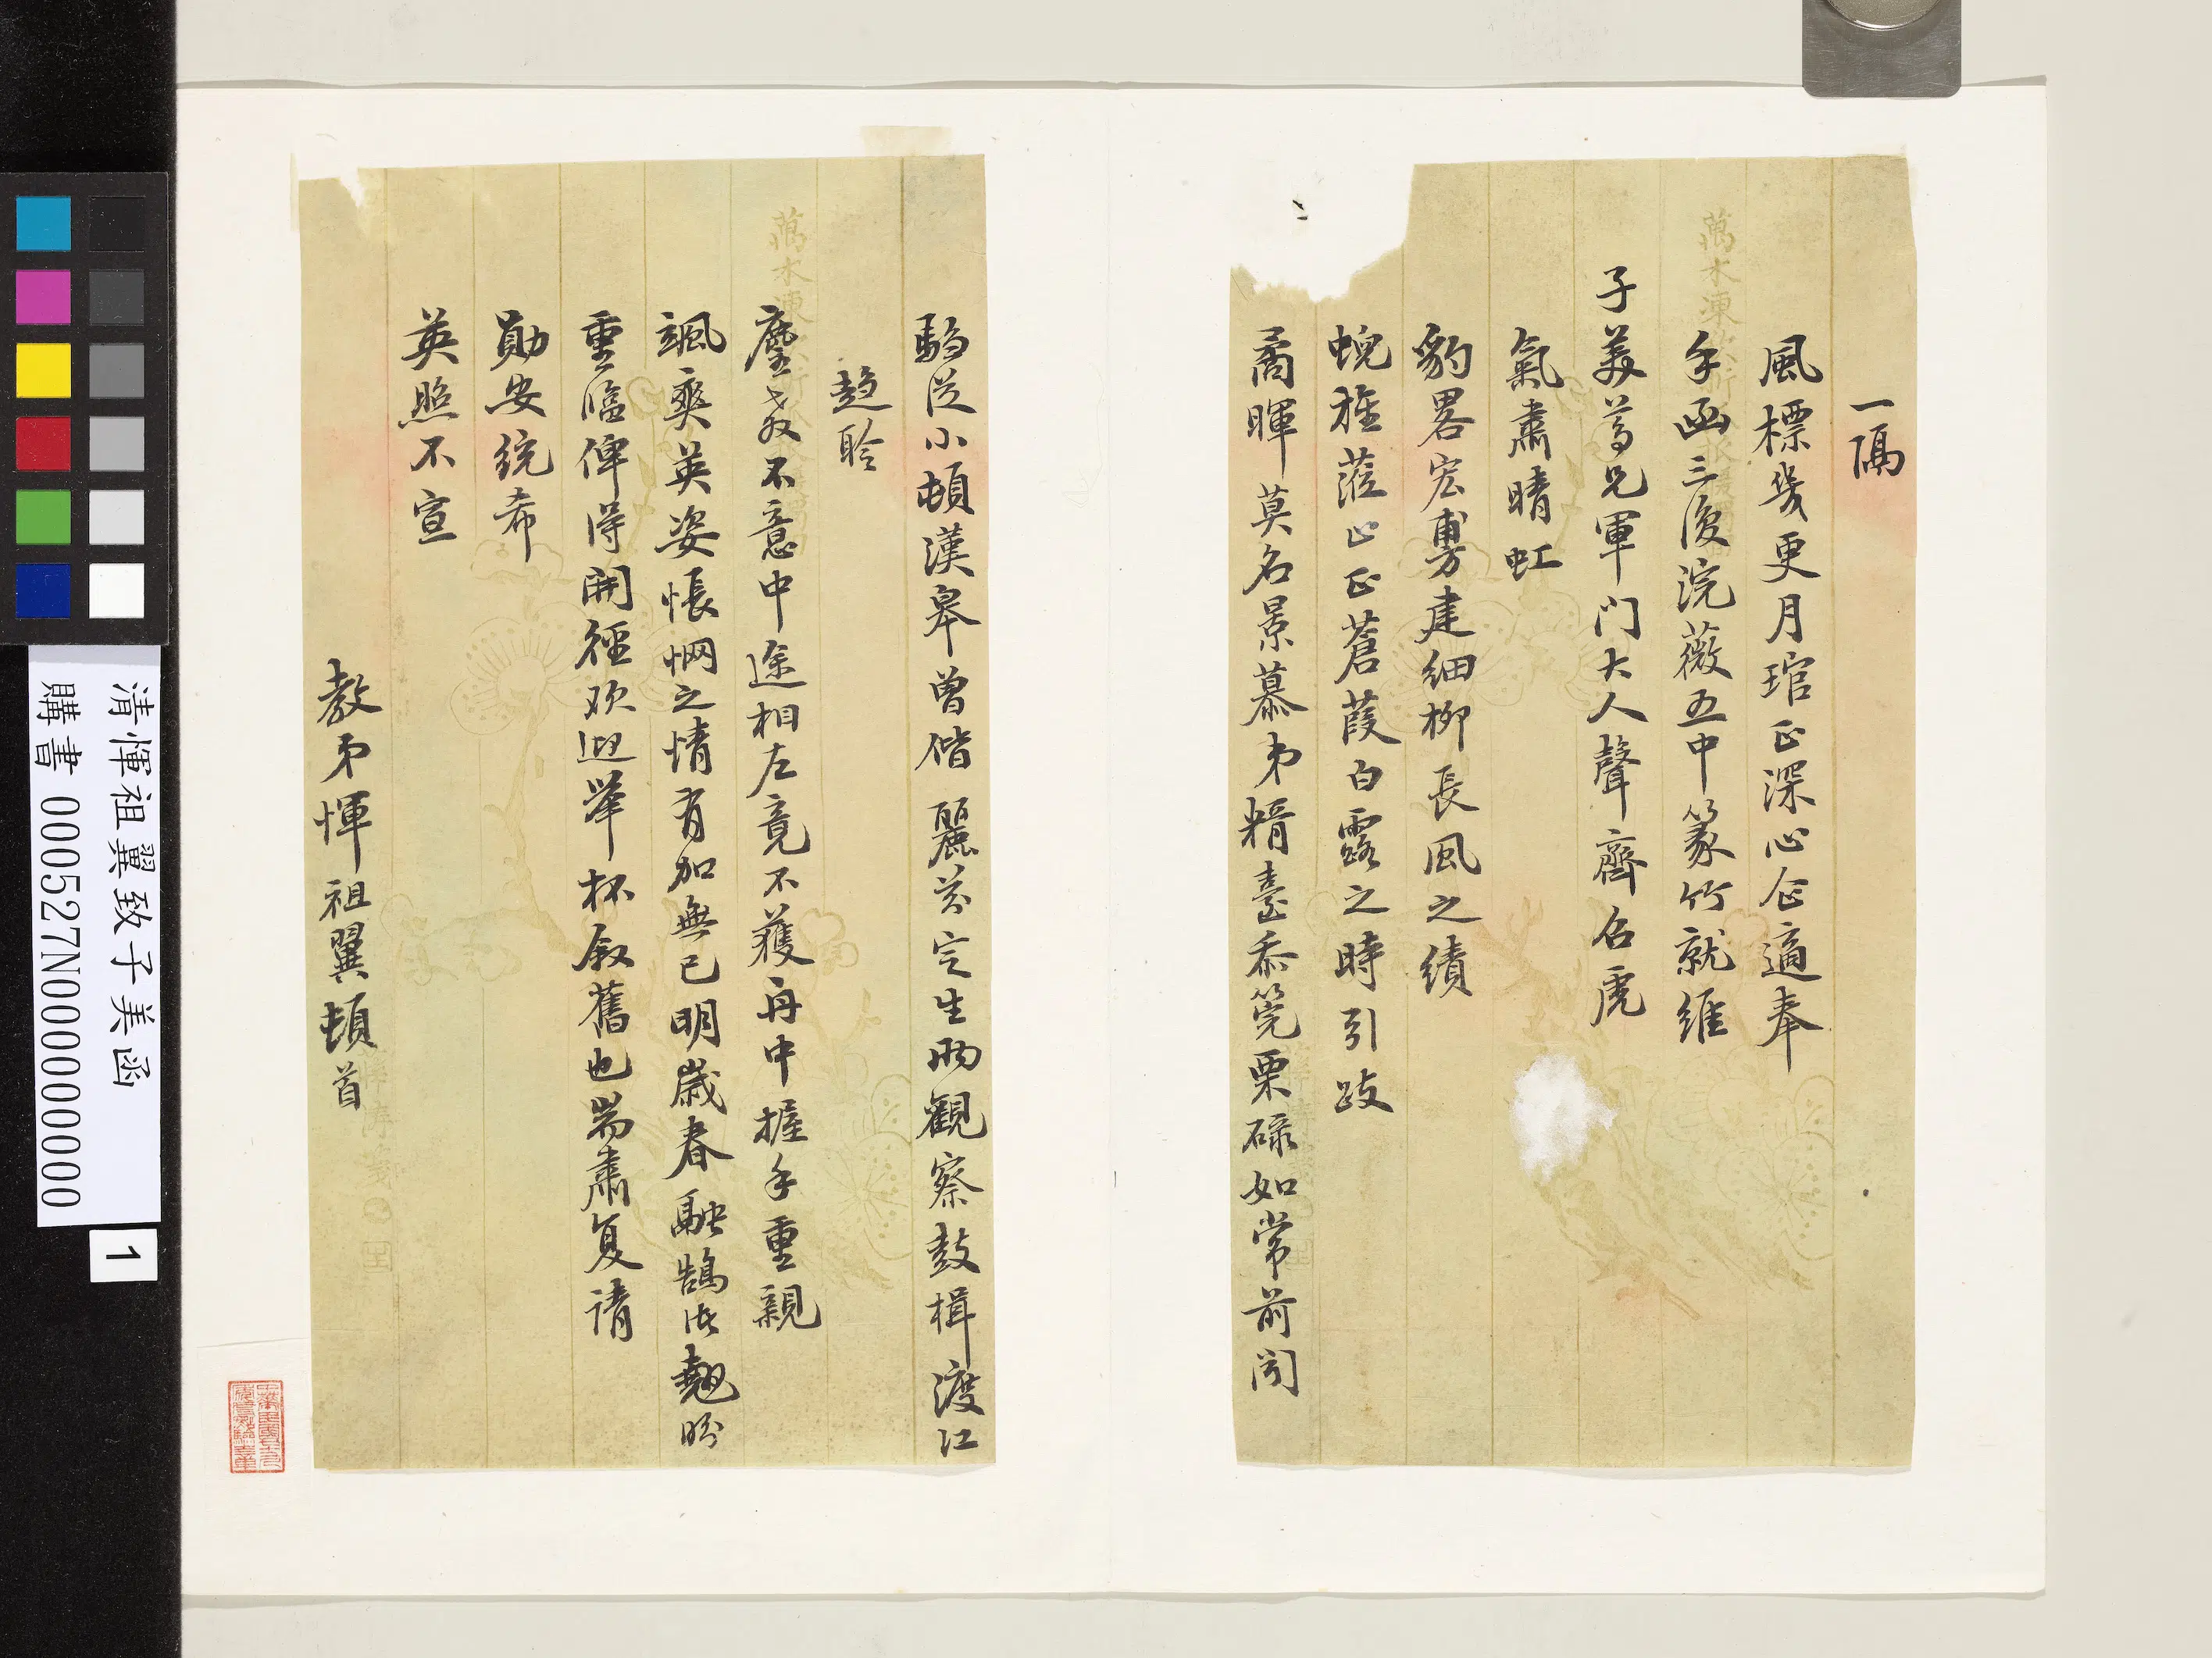 一隔
風標幾更月琯正深心企適奉
手函三復浣薇五中篆竹就維
子美尊兄軍門大人聲齊召虎
氣肅晴虹
豹畧宏敷建細柳長風之績
蜺旌蒞止正蒼葭白露之時引跂
矞暉莫名景慕弟糈臺忝筦栗碌如常前聞
騶從小頓漢皋曾偕麗芬定生兩觀察鼓楫渡江
趨聆
麈教不意中途相左竟不獲舟中握手重親
颯爽英姿悵惘之情有加無已明歲春融鵠俟翹盼
重臨俾得開徑歡迎舉杯敘舊也耑肅复請
勛安統希
英照不宣
教弟惲祖翼頓首
清惲祖翼致子美函
購書 000527N000000000
1